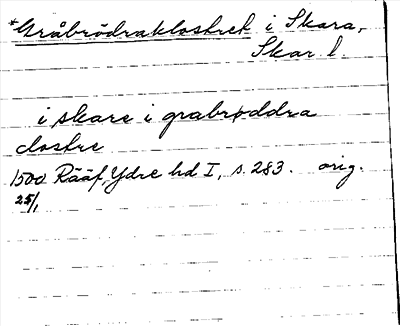 *Gråbrödraklostret i Skara,
Skar. l.
i skare i grabrøddra
clostre
1500 Rääf, Ydre hd I, s. 283. orig.
25/1